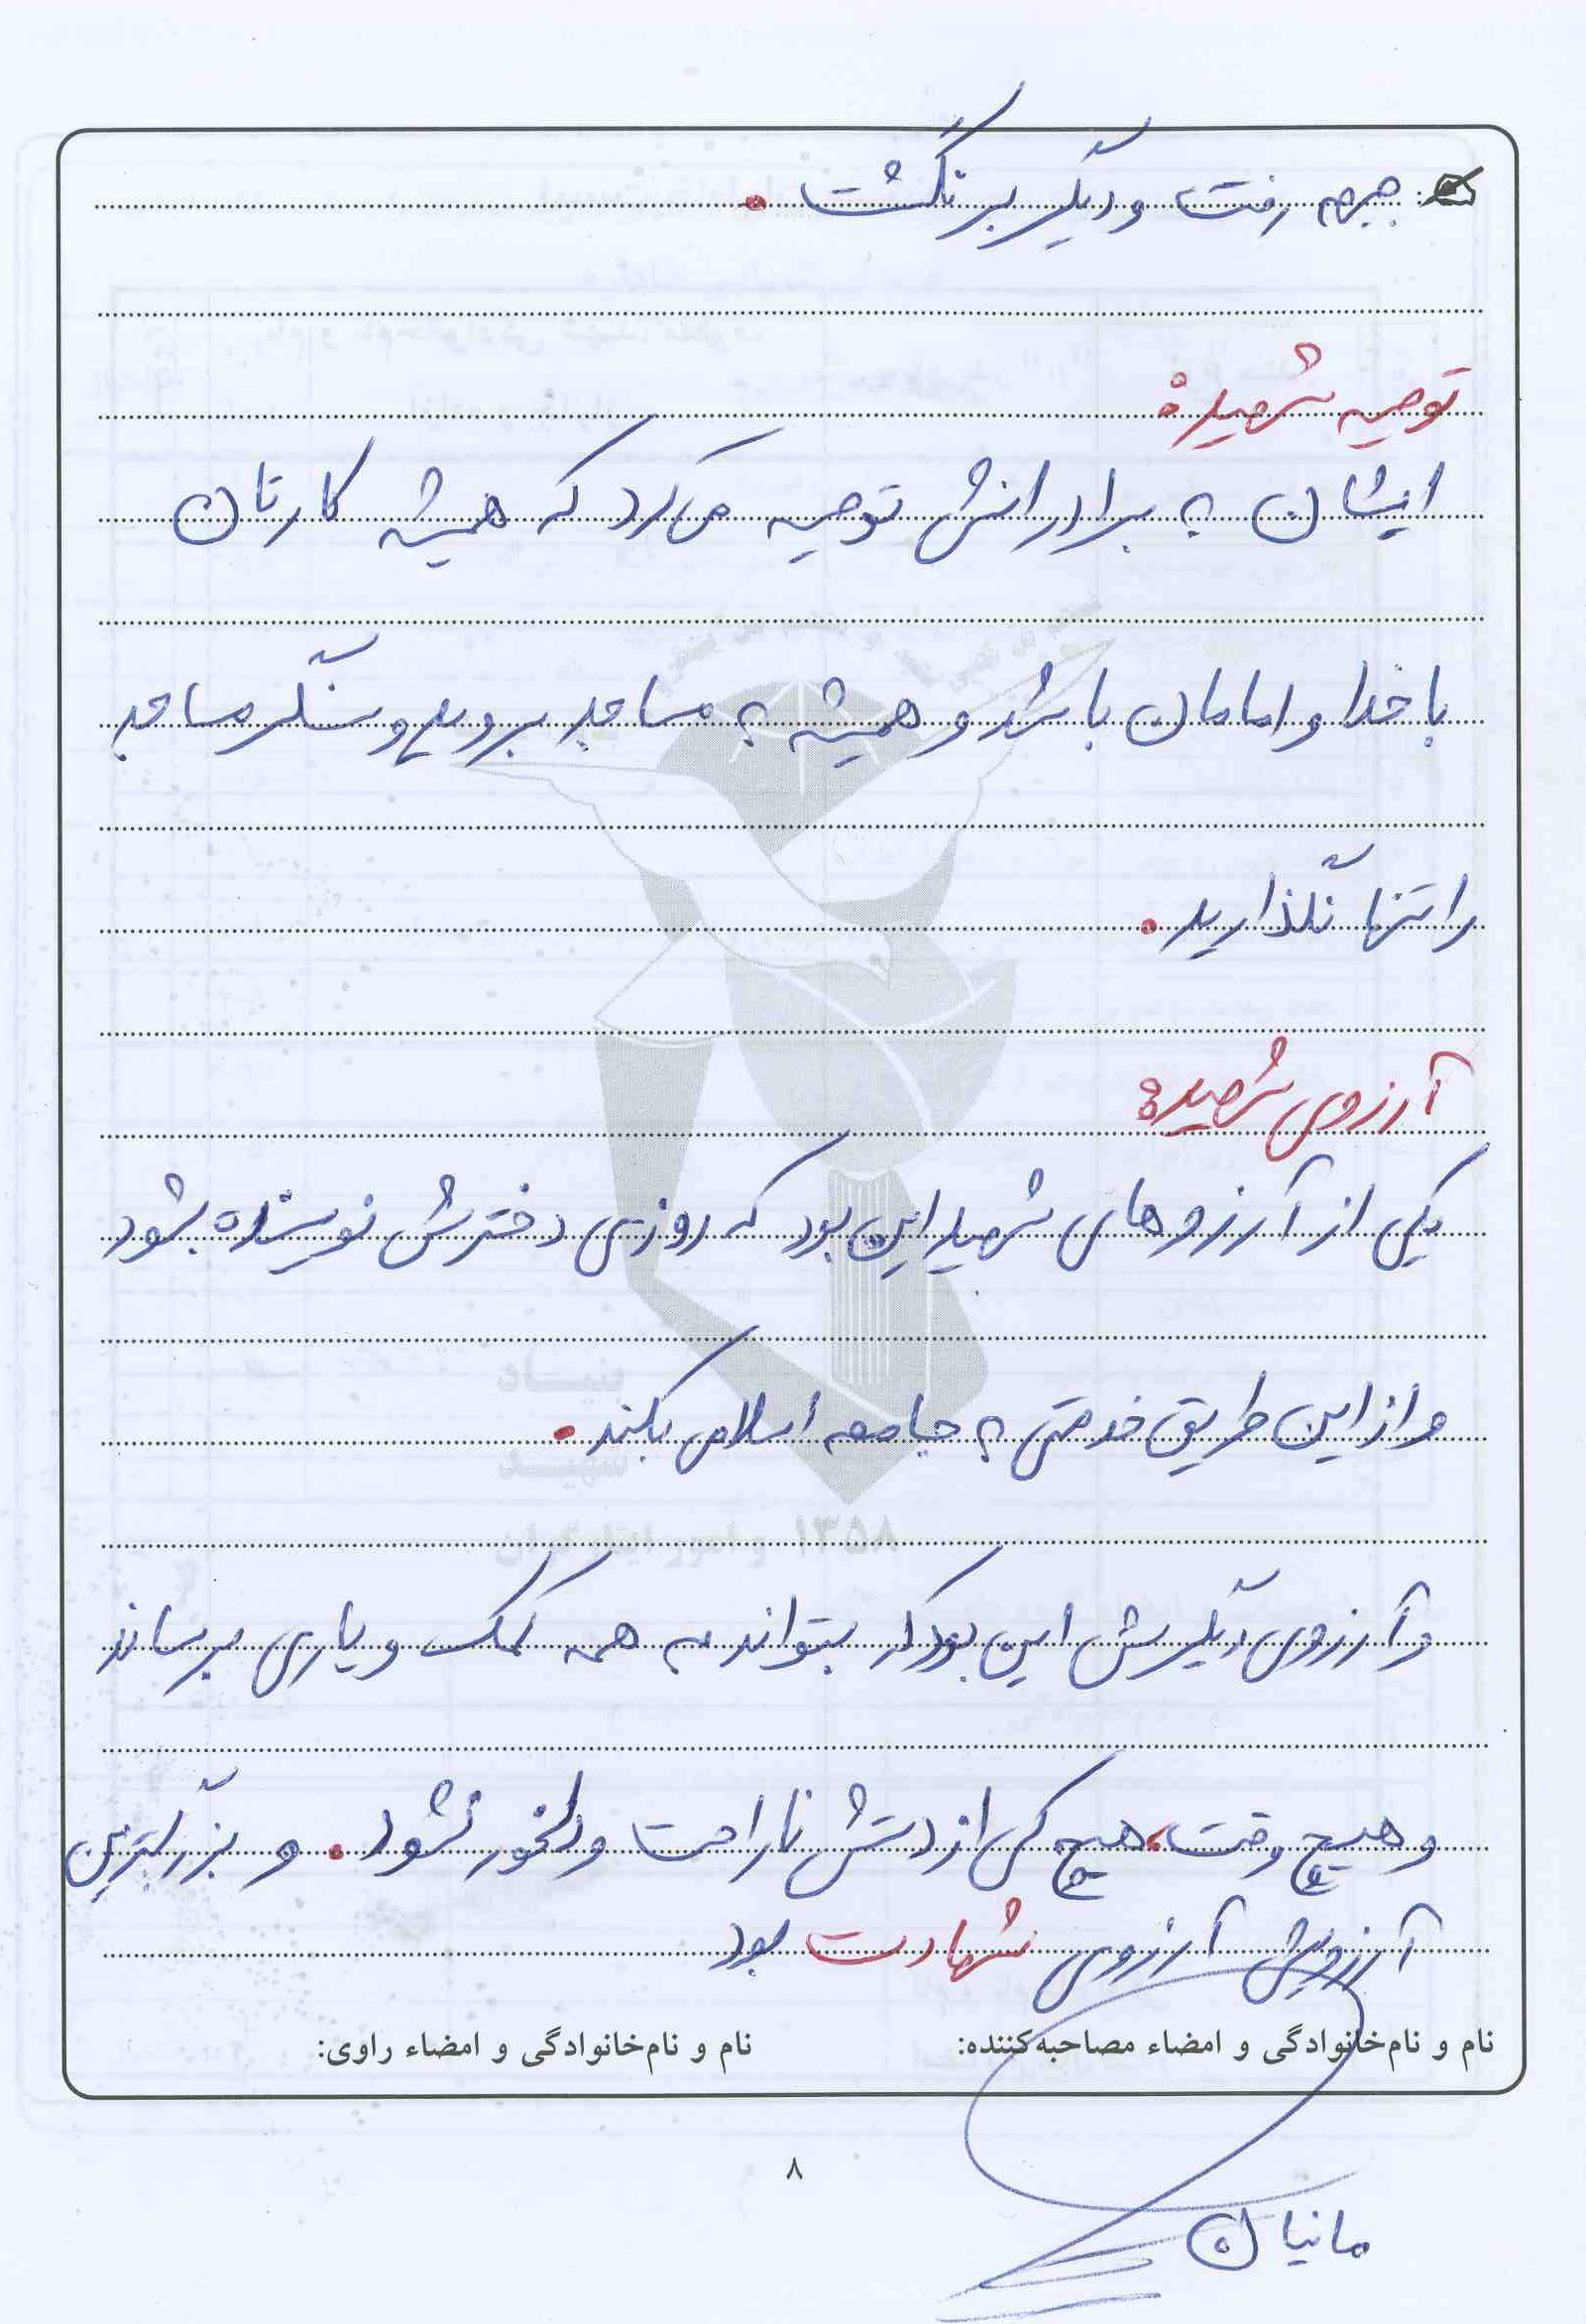 جبهه رفت و دیگر برنگشت.
توصیه شهید:
ایشان به برادرانش توصیه می‌کرد که همیشه کارتان
با خدا و امامان باشد و همیشه به مساجد بروید و سنگر مساجد
را تنها نگذارید.
آرزوی شهید:
یکی از آرزوهای شهید این بود که روزی دخترش نویسنده بشود
و از این طریق خدمتی به جامعه اسلامی بکند.
و آرزوی دیگرش این بود که بتواند به همه کمک و یاری برساند
و هیچ وقت، هیچ کس از دستش ناراحت و دلخور نشود. و بزرگترین
آرزویش آرزوی شهادت بود
نام و نام‌خانوادگی و امضاء مصاحبه‌کننده: نام و نام‌خانوادگی و امضاء راوی:
۸
مانیان